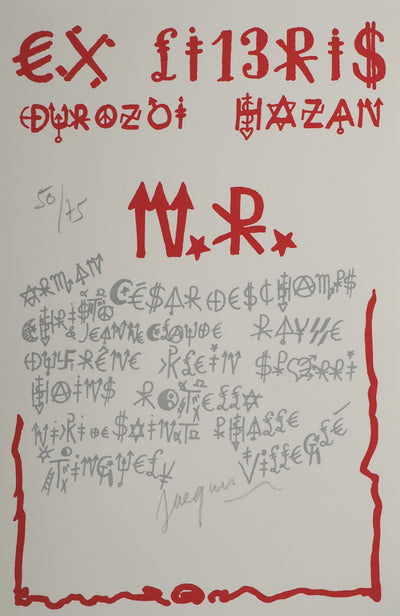 EX LIBRIS
DUROZOI HAZAN
50/75
N.R.
ARMAN CÉSAR DESCHAMPS
CHRISTO
& JEANNE CLAUDE RAYSSE
DUFRÊNE KLEIN SPOERRI
HAINS ROTELLA
NIKI DE SAINT PHALLE
TINGUELY VILLEGLÉ
Jacques